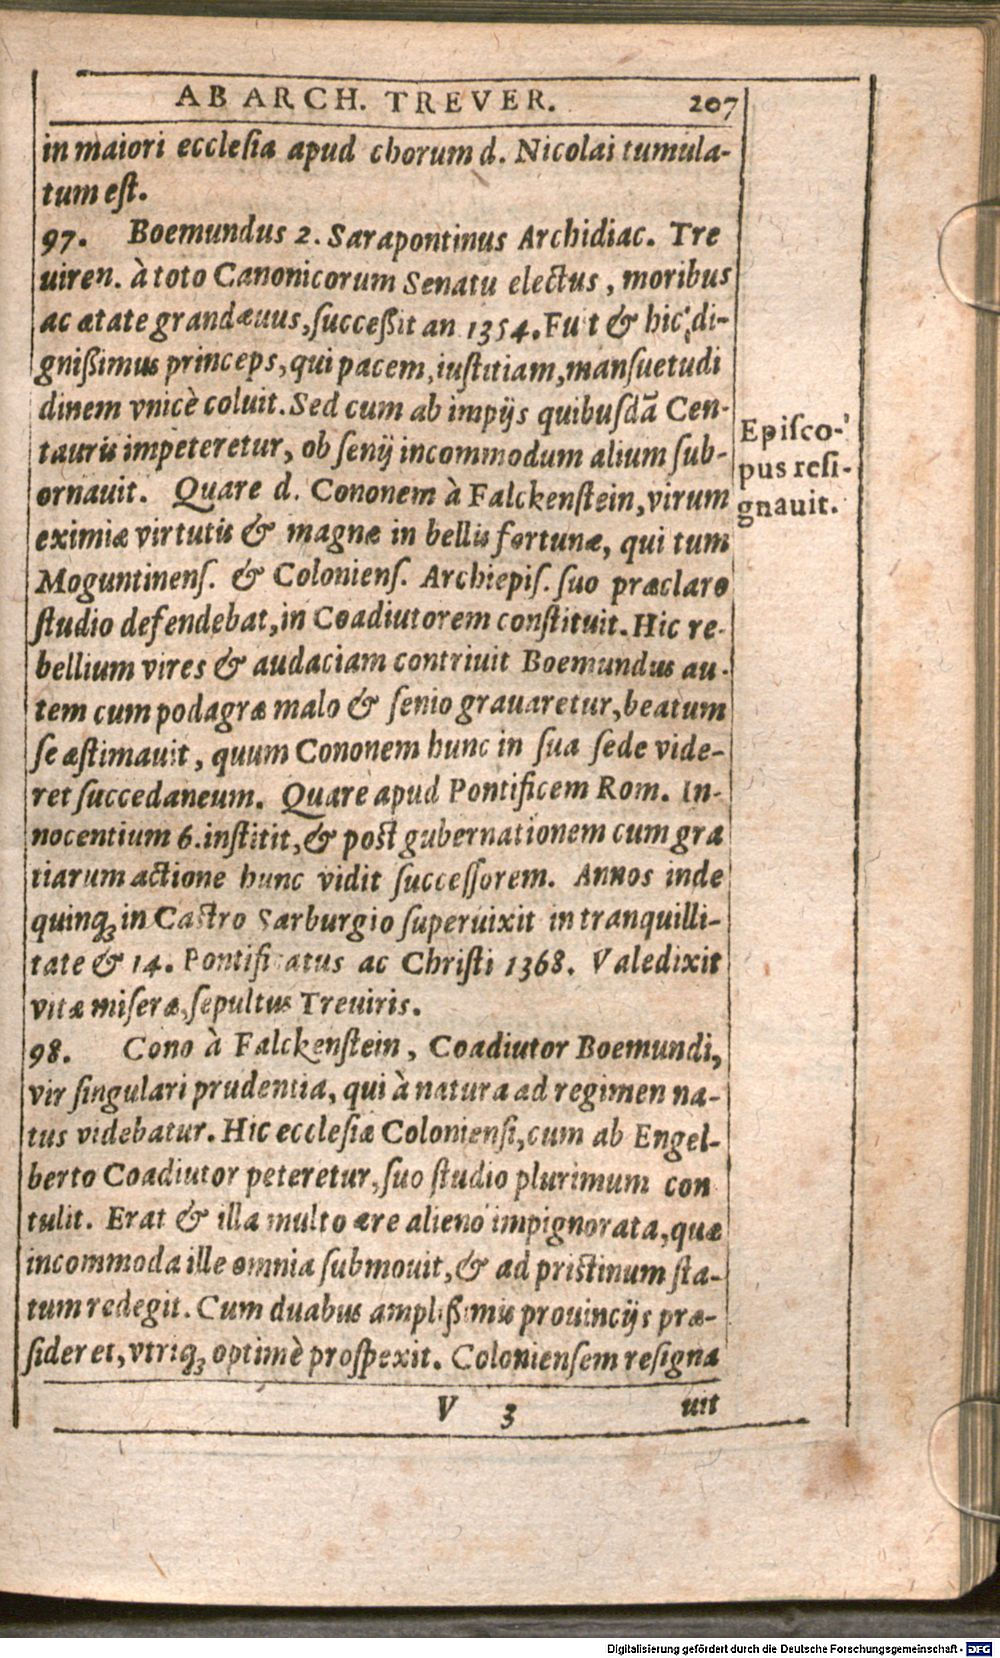 AB ARCH. TREVER. 207
in maiori ecclesia apud chorum d. Nicolai tumula-
tum est.
97. Boemundus 2. Sarapontinus Archidiac. Tre
uiren. à toto Canonicorum Senatu electus, moribus
ac ætate grandæuus, successit an 1354. Fuit & hic di-
gnissimus princeps, qui pacem, iustitiam, mansuetudi
dinem vnicè coluit. Sed cum ab impijs quibusdã Cen-
tauris impeteretur, ob senij incommodum alium sub-
ornauit. Quare d. Cononem à Falckenstein, virum
eximiæ virtutis & magnæ in bellis fortunæ, qui tum
Moguntinens. & Coloniens. Archiepis. suo præclaro
studio defendebat, in Coadiutorem constituit. Hic re-
bellium vires & audaciam contriuit Boemundus au-
tem cum podagræ malo & senio grauaretur, beatum
se æstimauit, quum Cononem hunc in sua sede vide-
ret succedaneum. Quare apud Pontificem Rom. In-
nocentium 6. institit, & post gubernationem cum gra
tiarum actione hunc vidit successorem. Annos inde
quinqꝫ in Castro Sarburgio superuixit in tranquilli-
tate & 14. Pontificatus ac Christi 1368. Valedixit
vitæ miseræ, sepultus Treuiris.
98. Cono à Falckenstein, Coadiutor Boemundi,
vir singulari prudentia, qui à natura ad regimen na-
tus videbatur. Hic ecclesiæ Coloniensi, cum ab Engel-
berto Coadiutor peteretur, suo studio plurimum con
tulit. Erat & illa multo ære alieno impignorata, quæ
incommoda ille omnia submouit, & ad pristinum sta-
tum redegit. Cum duabus amplissimis prouincijs præ-
sideret, vtriqꝫ optimè prospexit. Coloniensem resigna
V 3 uit
Episco-
pus resi-
gnauit.
Digitalisierung gefördert durch die Deutsche Forschungsgemeinschaft - DFG